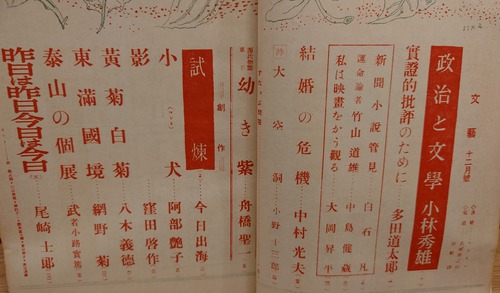 文藝 十二月號
政治と文學 小林秀雄
實證的批評のために 多田道太郎
新聞小說管見 白石凡
運命論者 竹山道雄 中島健蔵
私は映畫をかう觀る 大岡昇平
結婚の危機 中村光夫
詩 大空洞 小野十三郎
幼き紫 舟橋聖一
創作
試煉 今日出海
小犬 阿部艶子
影 窪田啓作
黃菊白菊 八木義德
東滿國境 網野菊
泰山の個展 武者小路實篤
昨日は昨日今日は今日 尾崎士郎